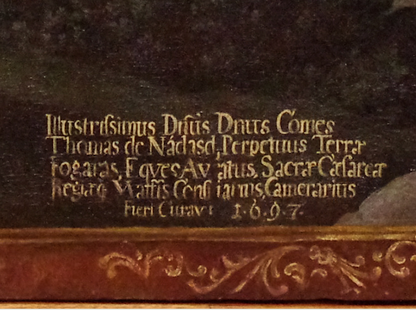 Illustrissimus Dnus Dnus Comes
Thomas de Nádasd, Perpetuus Terræ
Fogaras, Eques Au atus, Sacræ Cæsareæ
Regiæq Mattis Cons iarius, Camerarius
Fieri Curavit 1.6.9.7.